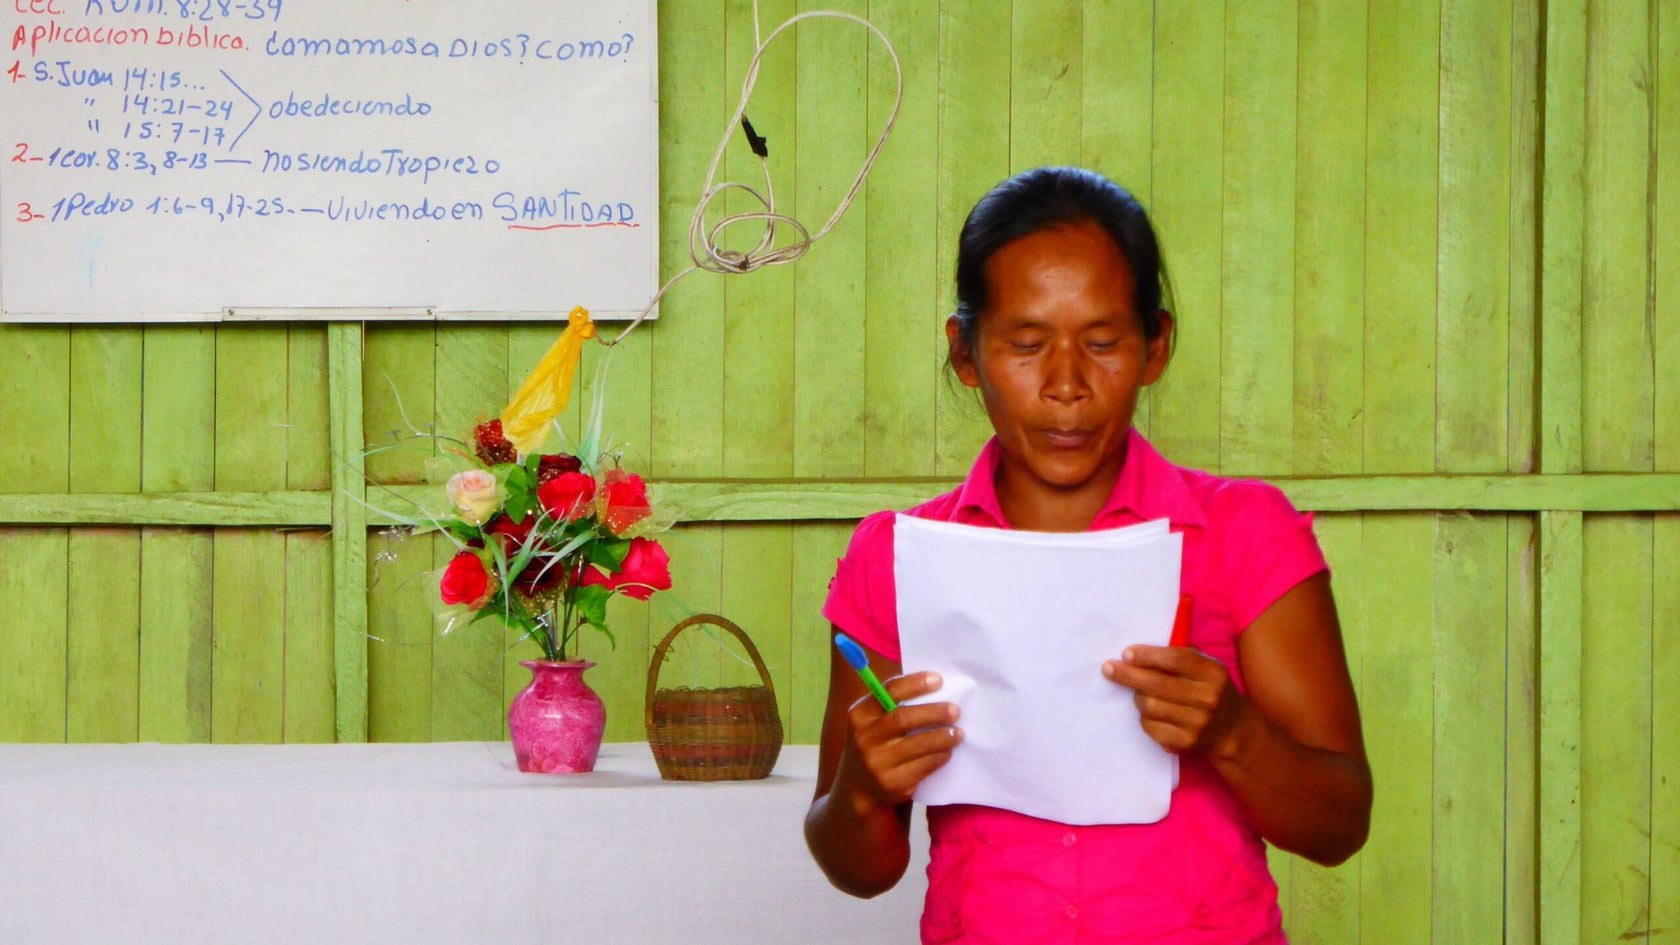 Lec. Rom. 8:28-39
Aplicacion Biblica. ¿amamos a Dios? Como?
1- S. Juan 14:15...
" 14:21-24
" 15:7-17
obedeciendo
2- 1 cor. 8:3, 8-13 — no siendo Tropiezo
3- 1 Pedro 1:6-9, 17-25. — Viviendo en SANTIDAD